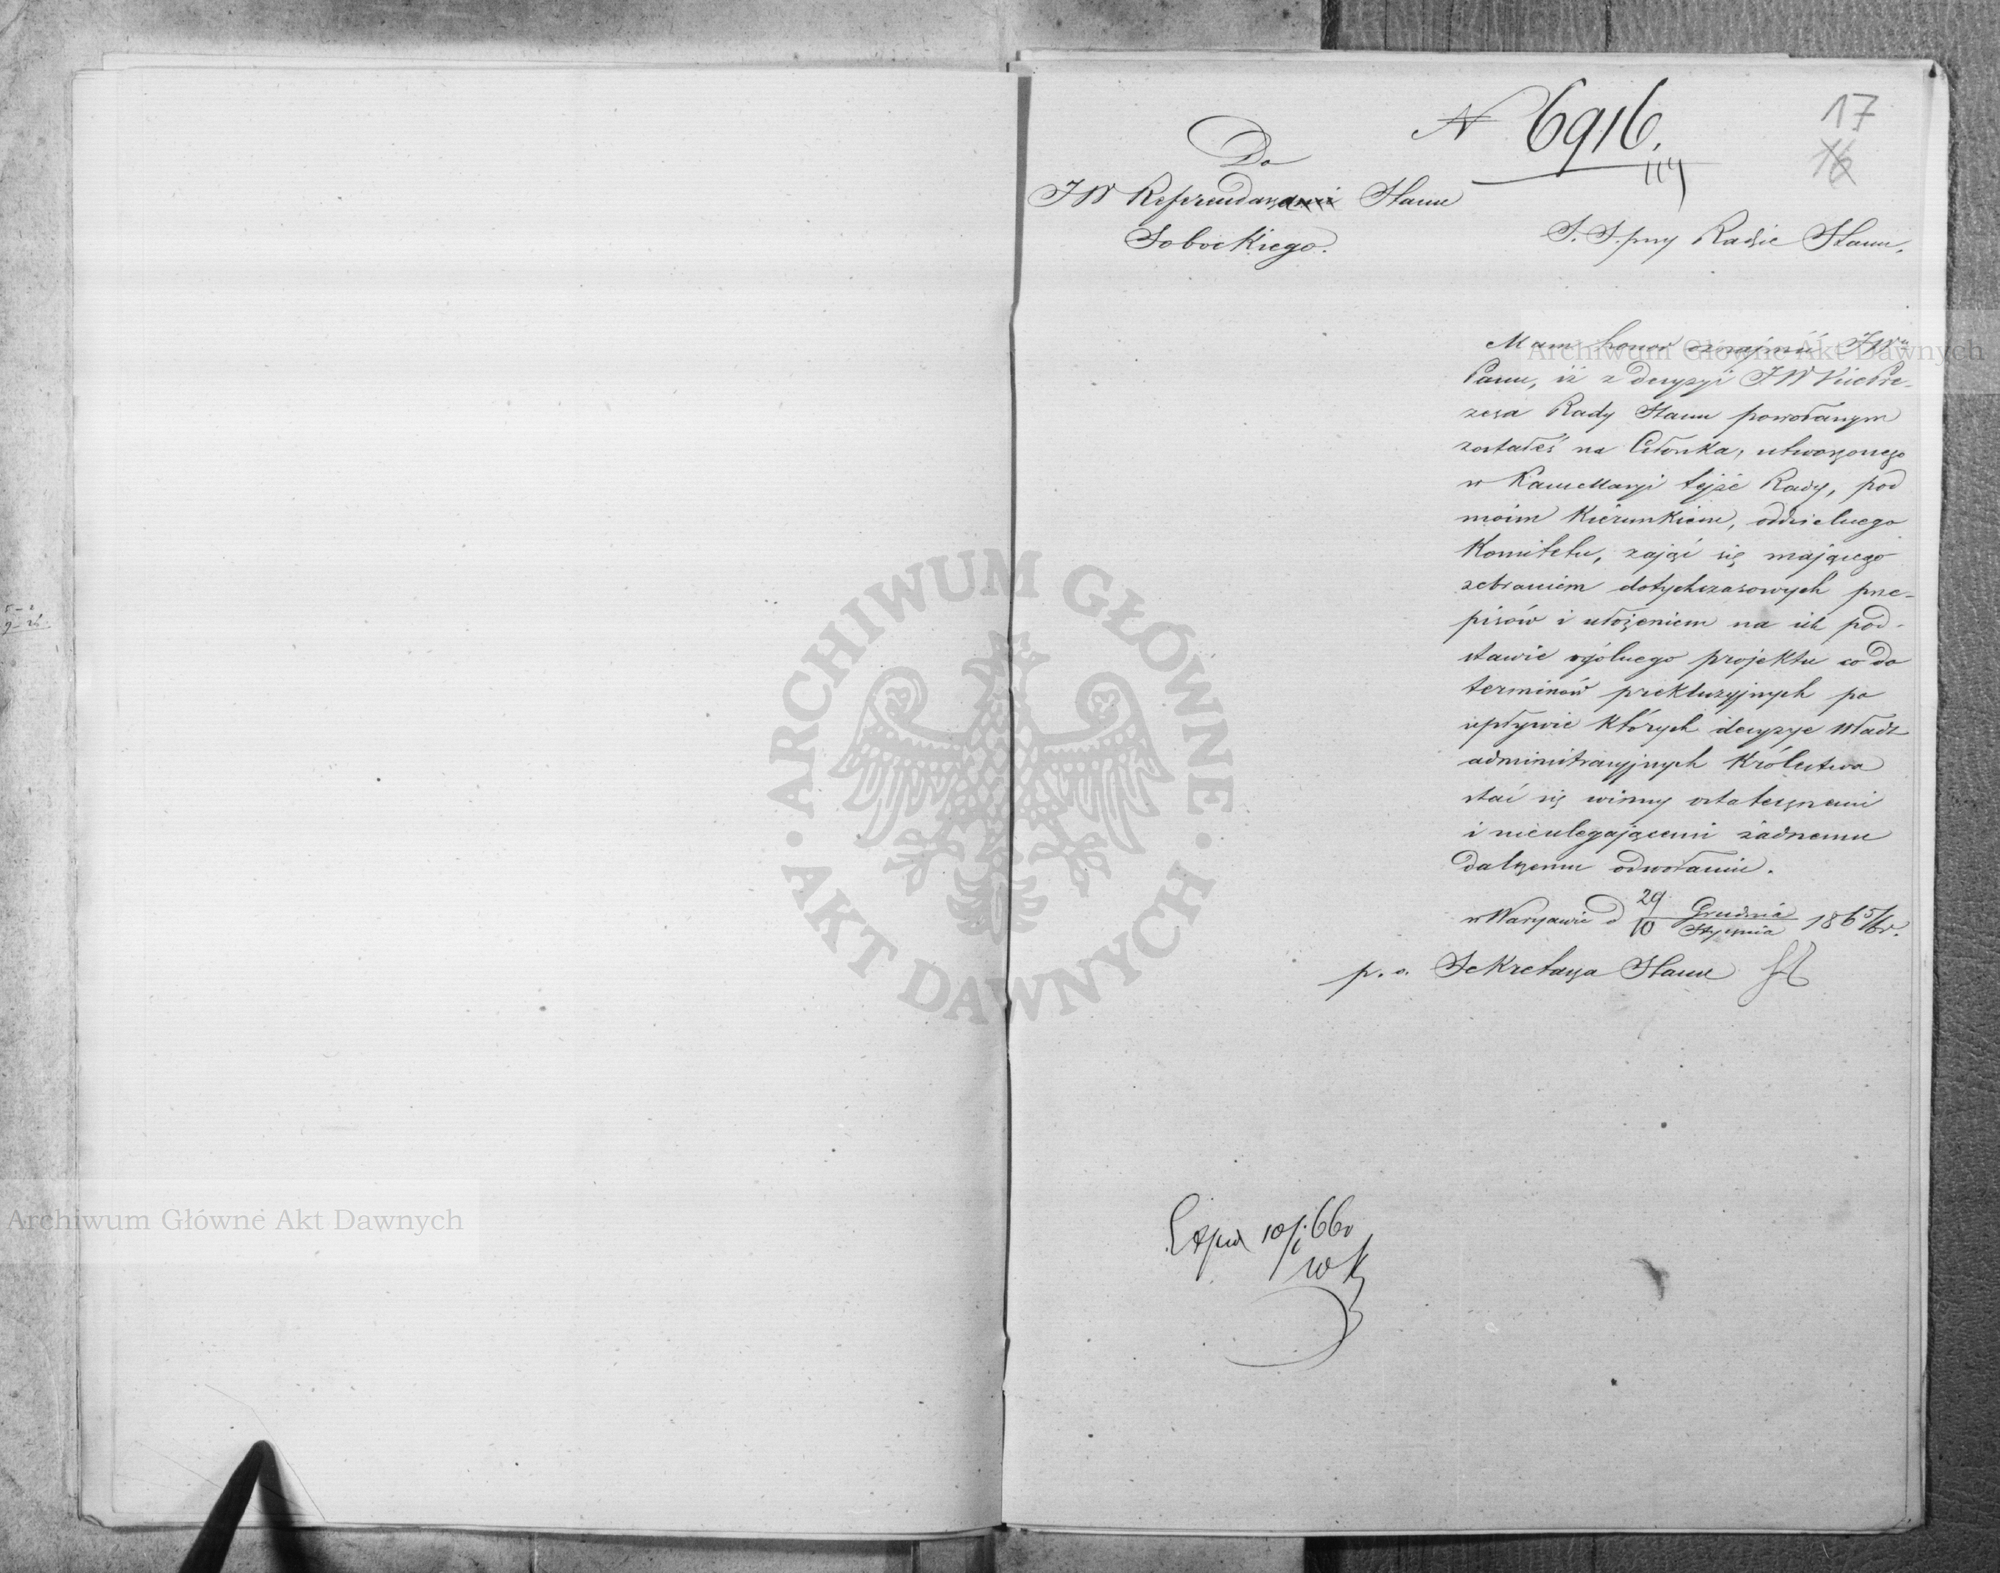 N 6916.
17
16
Do
JW Referendarza Stanu
Sobockiego.
S. S. przy Radzie Stanu.
Mam honor oznajmić JWu
Panu, iż z decyzyi JW VicePre-
zesa Rady Stanu powołanym
zostałeś na Członka, utworzonego
w Kancellaryi tejże Rady, pod
moim Kierunkiem, oddzielnego
Komitetu, zająć się mającego
zebraniem dotychczasowych prze-
pisów i ułożeniem na ich pod-
stawie ogólnego projektu co do
terminów prekluzyjnych po
upływie których decyzye Władz
administracyjnych Królestwa
stać się winny ostatecznemi
i nieulegającemi żadnemu
dalszemu odwołaniu.
w Warszawie d 29/10 Grudnia/Stycznia 1865/6 r.
p. o. Sekretarza Stanu
Exped 10/1 66 r
WK
Archiwum Główne Akt Dawnych
ARCHIWUM GŁÓWNE · AKT DAWNYCH ·
Archiwum Główne Akt Dawnych